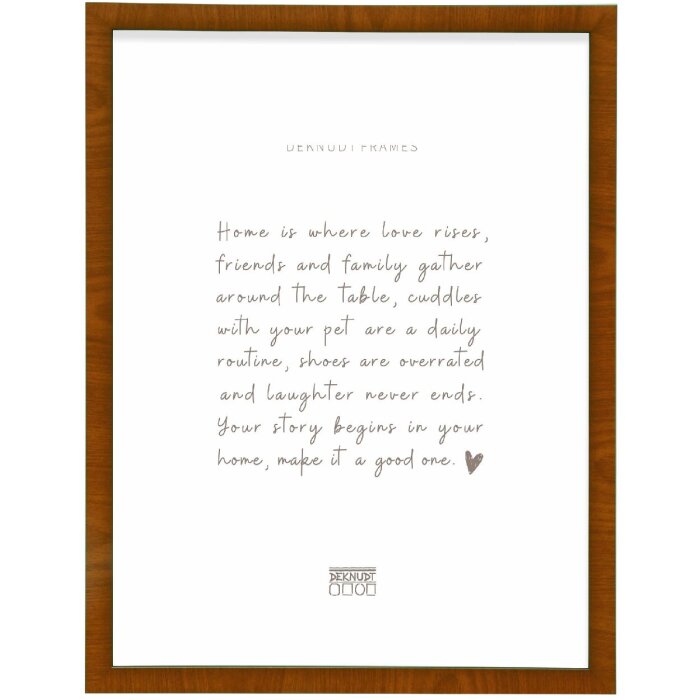 DEKNUDT FRAMES
Home is where love rises,
friends and family gather
around the table, cuddles
with your pet are a daily
routine, shoes are overrated
and laughter never ends.
Your story begins in your
home, make it a good one.
DEKNUDT